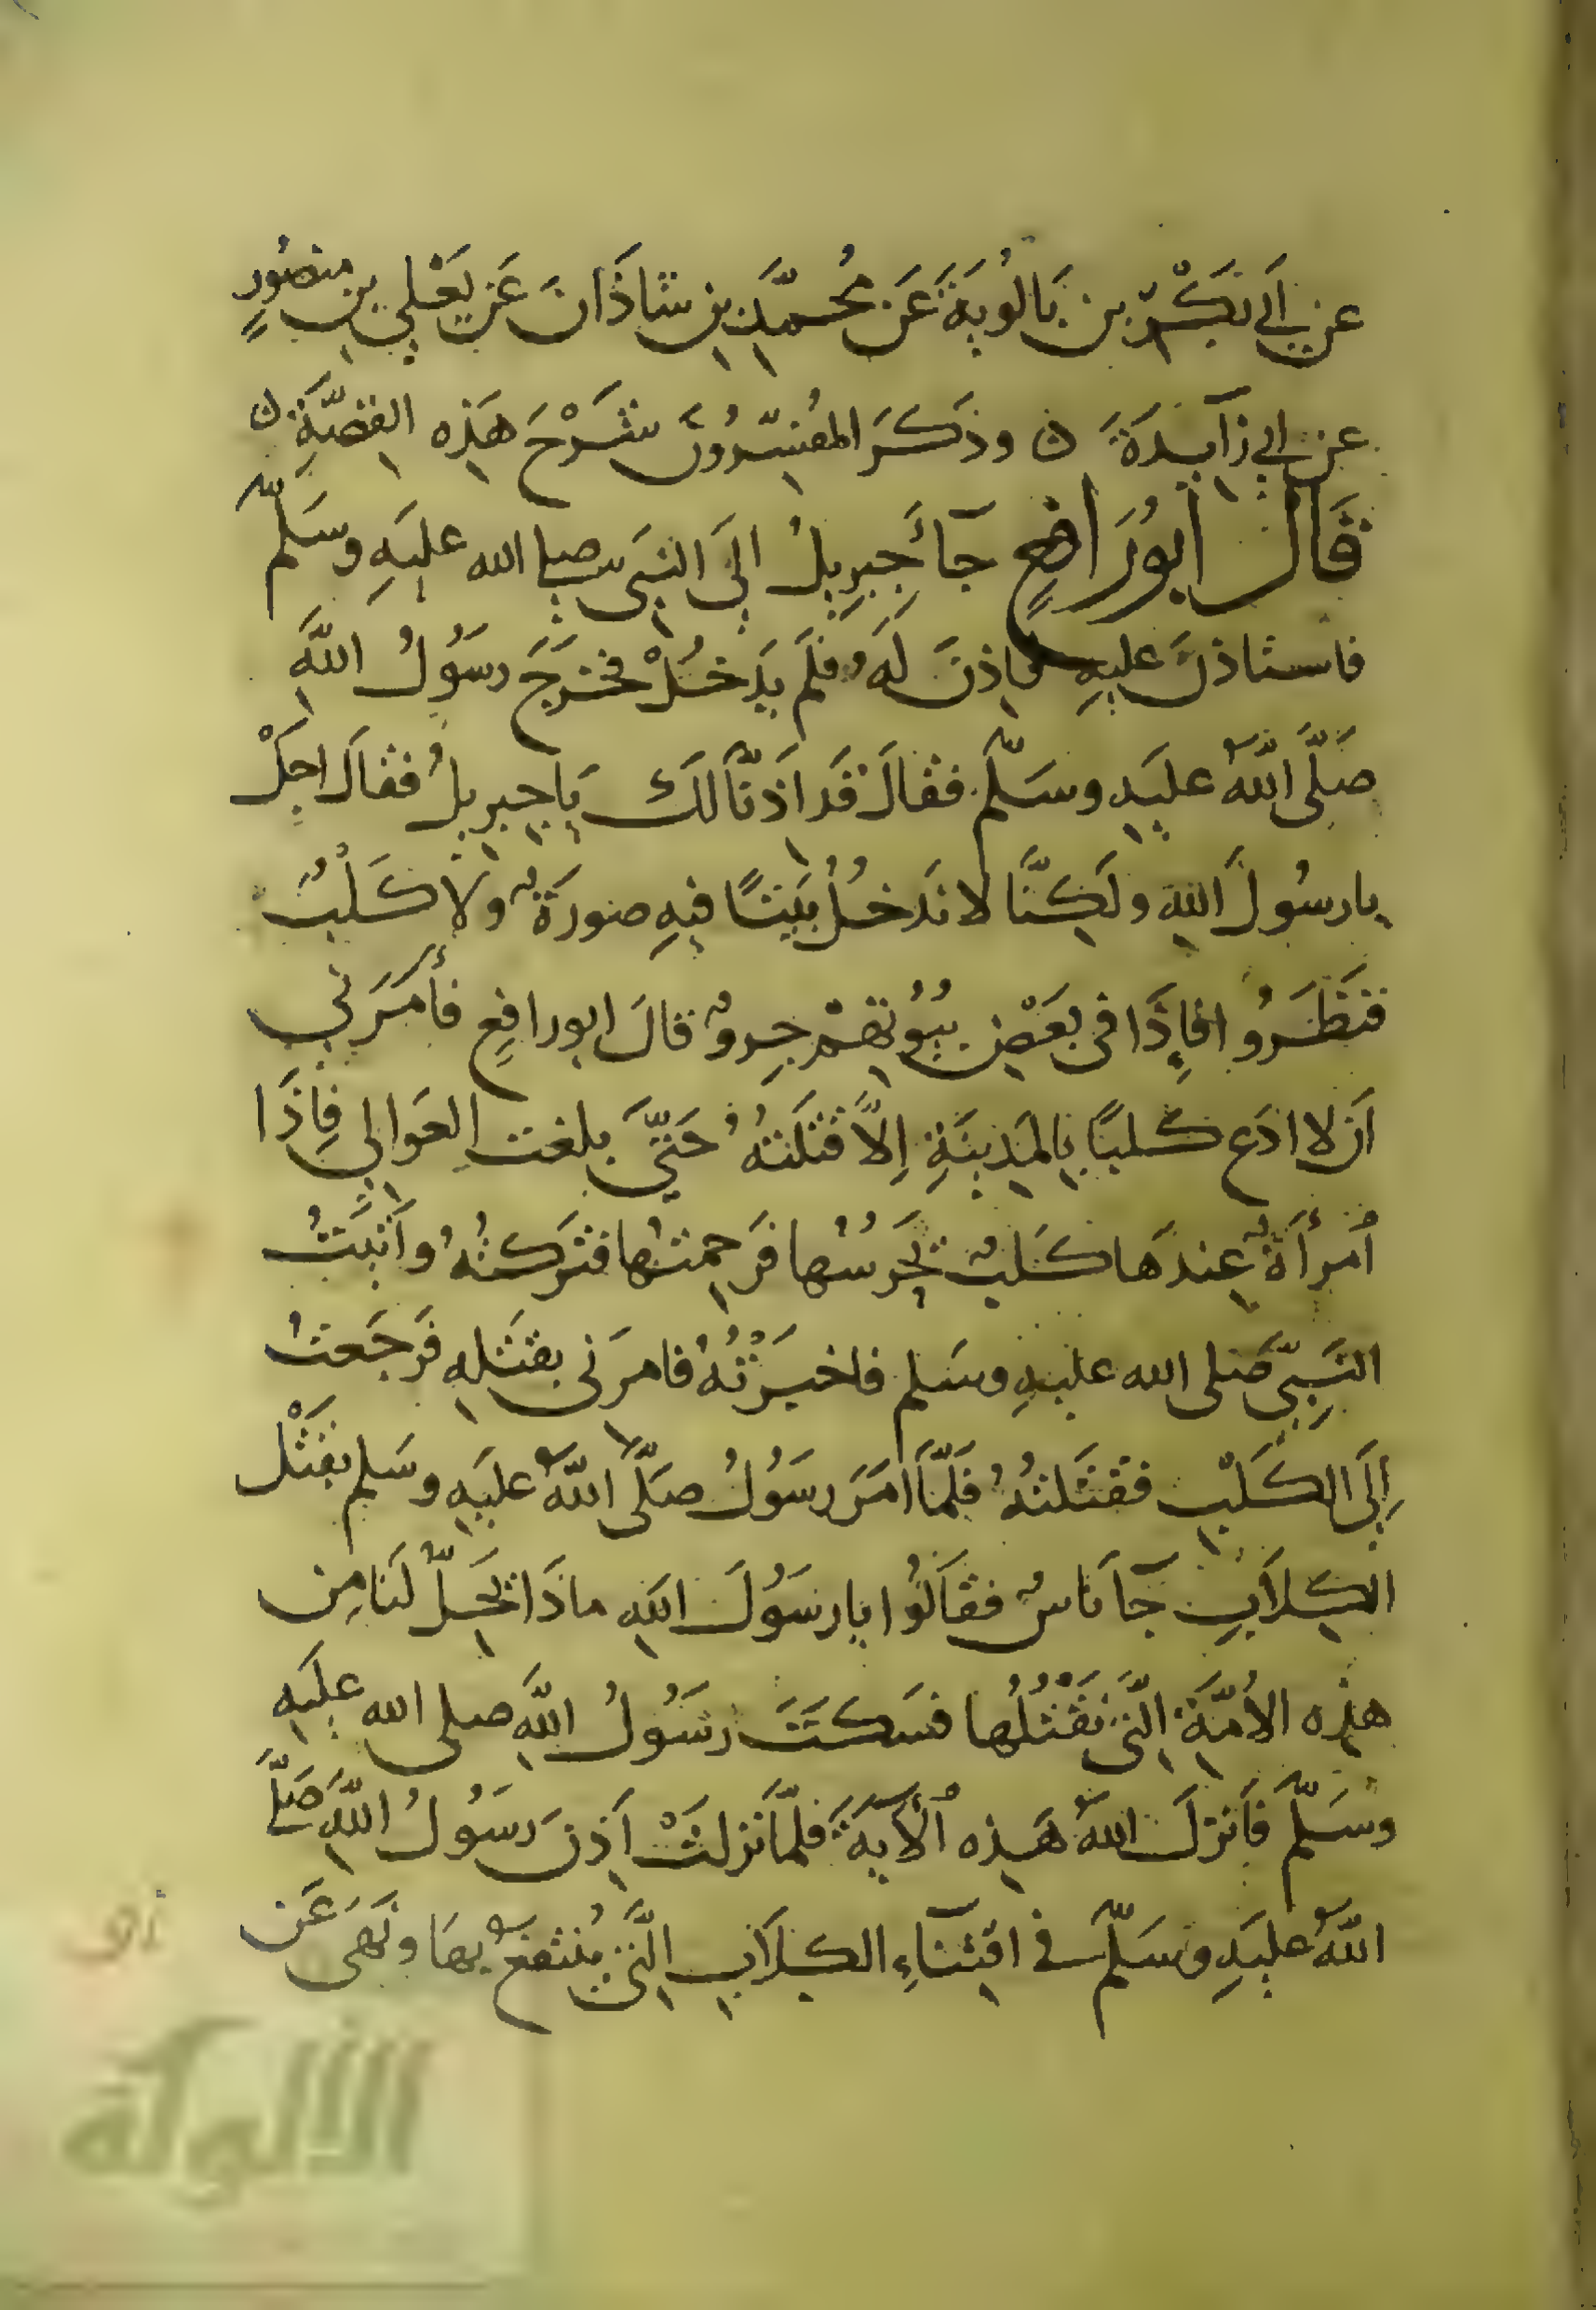 عن أَبي بَكْرِ بن بَالُويَةَ عَن مُحمَّدِ بنِ شاذَانَ عَن يَعْلي بنِ منصُورٍ
عن ابي زآيدَةَ ن وذَكَرَ المُفسِّرُونَ شَرْحَ هَذِه القصَّةِ ن
قَالَ ابُورَافِعٍ جآءَ جِبرِيلُ اِلَى النبَى صلى الله عليَهِ وسَلَّم
فاستاذنَ عليهِ فاذِنَ لَهُ فلَم يَدخُلْ فخَرَجَ رسَوُلُ اللَّهِ
صَلَّى اللَّهُ عليَهِ وسَلَّم فقالَ قَد اَذِنَّا لَكَ يَاجِبرِيلُ فقالَ اجَلْ
يارسُولَ اللهِ ولَكِنَّا لا نَدخُلُ بَيتًا فيهِ صورَةٌ ولا كَلْبٌ
فنَظَرُوا فاِذَا فى بَعْضِ بيُوُتهِمْ جِروٌ قالَ ابورافعٍ فأَمَرَني
اَن لا ادَع كلبًا بِالمَدِينَةِ اِلاَّ قتَلتهُ حَتّىَ بلغت العَوالِي فاِذَا
اُمرأَةٌ عِندهَا كَلبٌ يَحرُسُها فرَحِمتُها فتَركتُهُ وأَتَيتُ
النَبِيَّ صَلى الله عليهِ وسَلم فاخبَرْتُهُ فامرَنى بقَتلِهِ فرَجَعتُ
إِلَى الكَلْبِ فقتَلتُهُ فلَمَّا اَمَرَ رسَوُلُ صَلَّى اللَّهُ عليَهِ وسَلم بقَتْل
الكِلاَبِ جآ ناسٌ فقالُوا يارسَوُلَ اللهِ ماذَا يَحِلُّ لَنا مِن
هذِه الاُمَّةِ الَّتى نَقْتُلُها فسَكتَ رسَوُلُ اللَّهِ صلى الله عليَهِ
وسَلَّم فاَنزلَ اللهُ هَذِه اُلآيةَ فلَمَّا نَزلتْ اَذِنَ رسَوُلُ اللَّهِ صَلَّى
اللَّهُ عليَهِ وسَلَّم فى اقتِنآءِ الكِلاَبِ الَّتى يُنتفعُ بِهَا ونَهىَ عَن
الألوكة